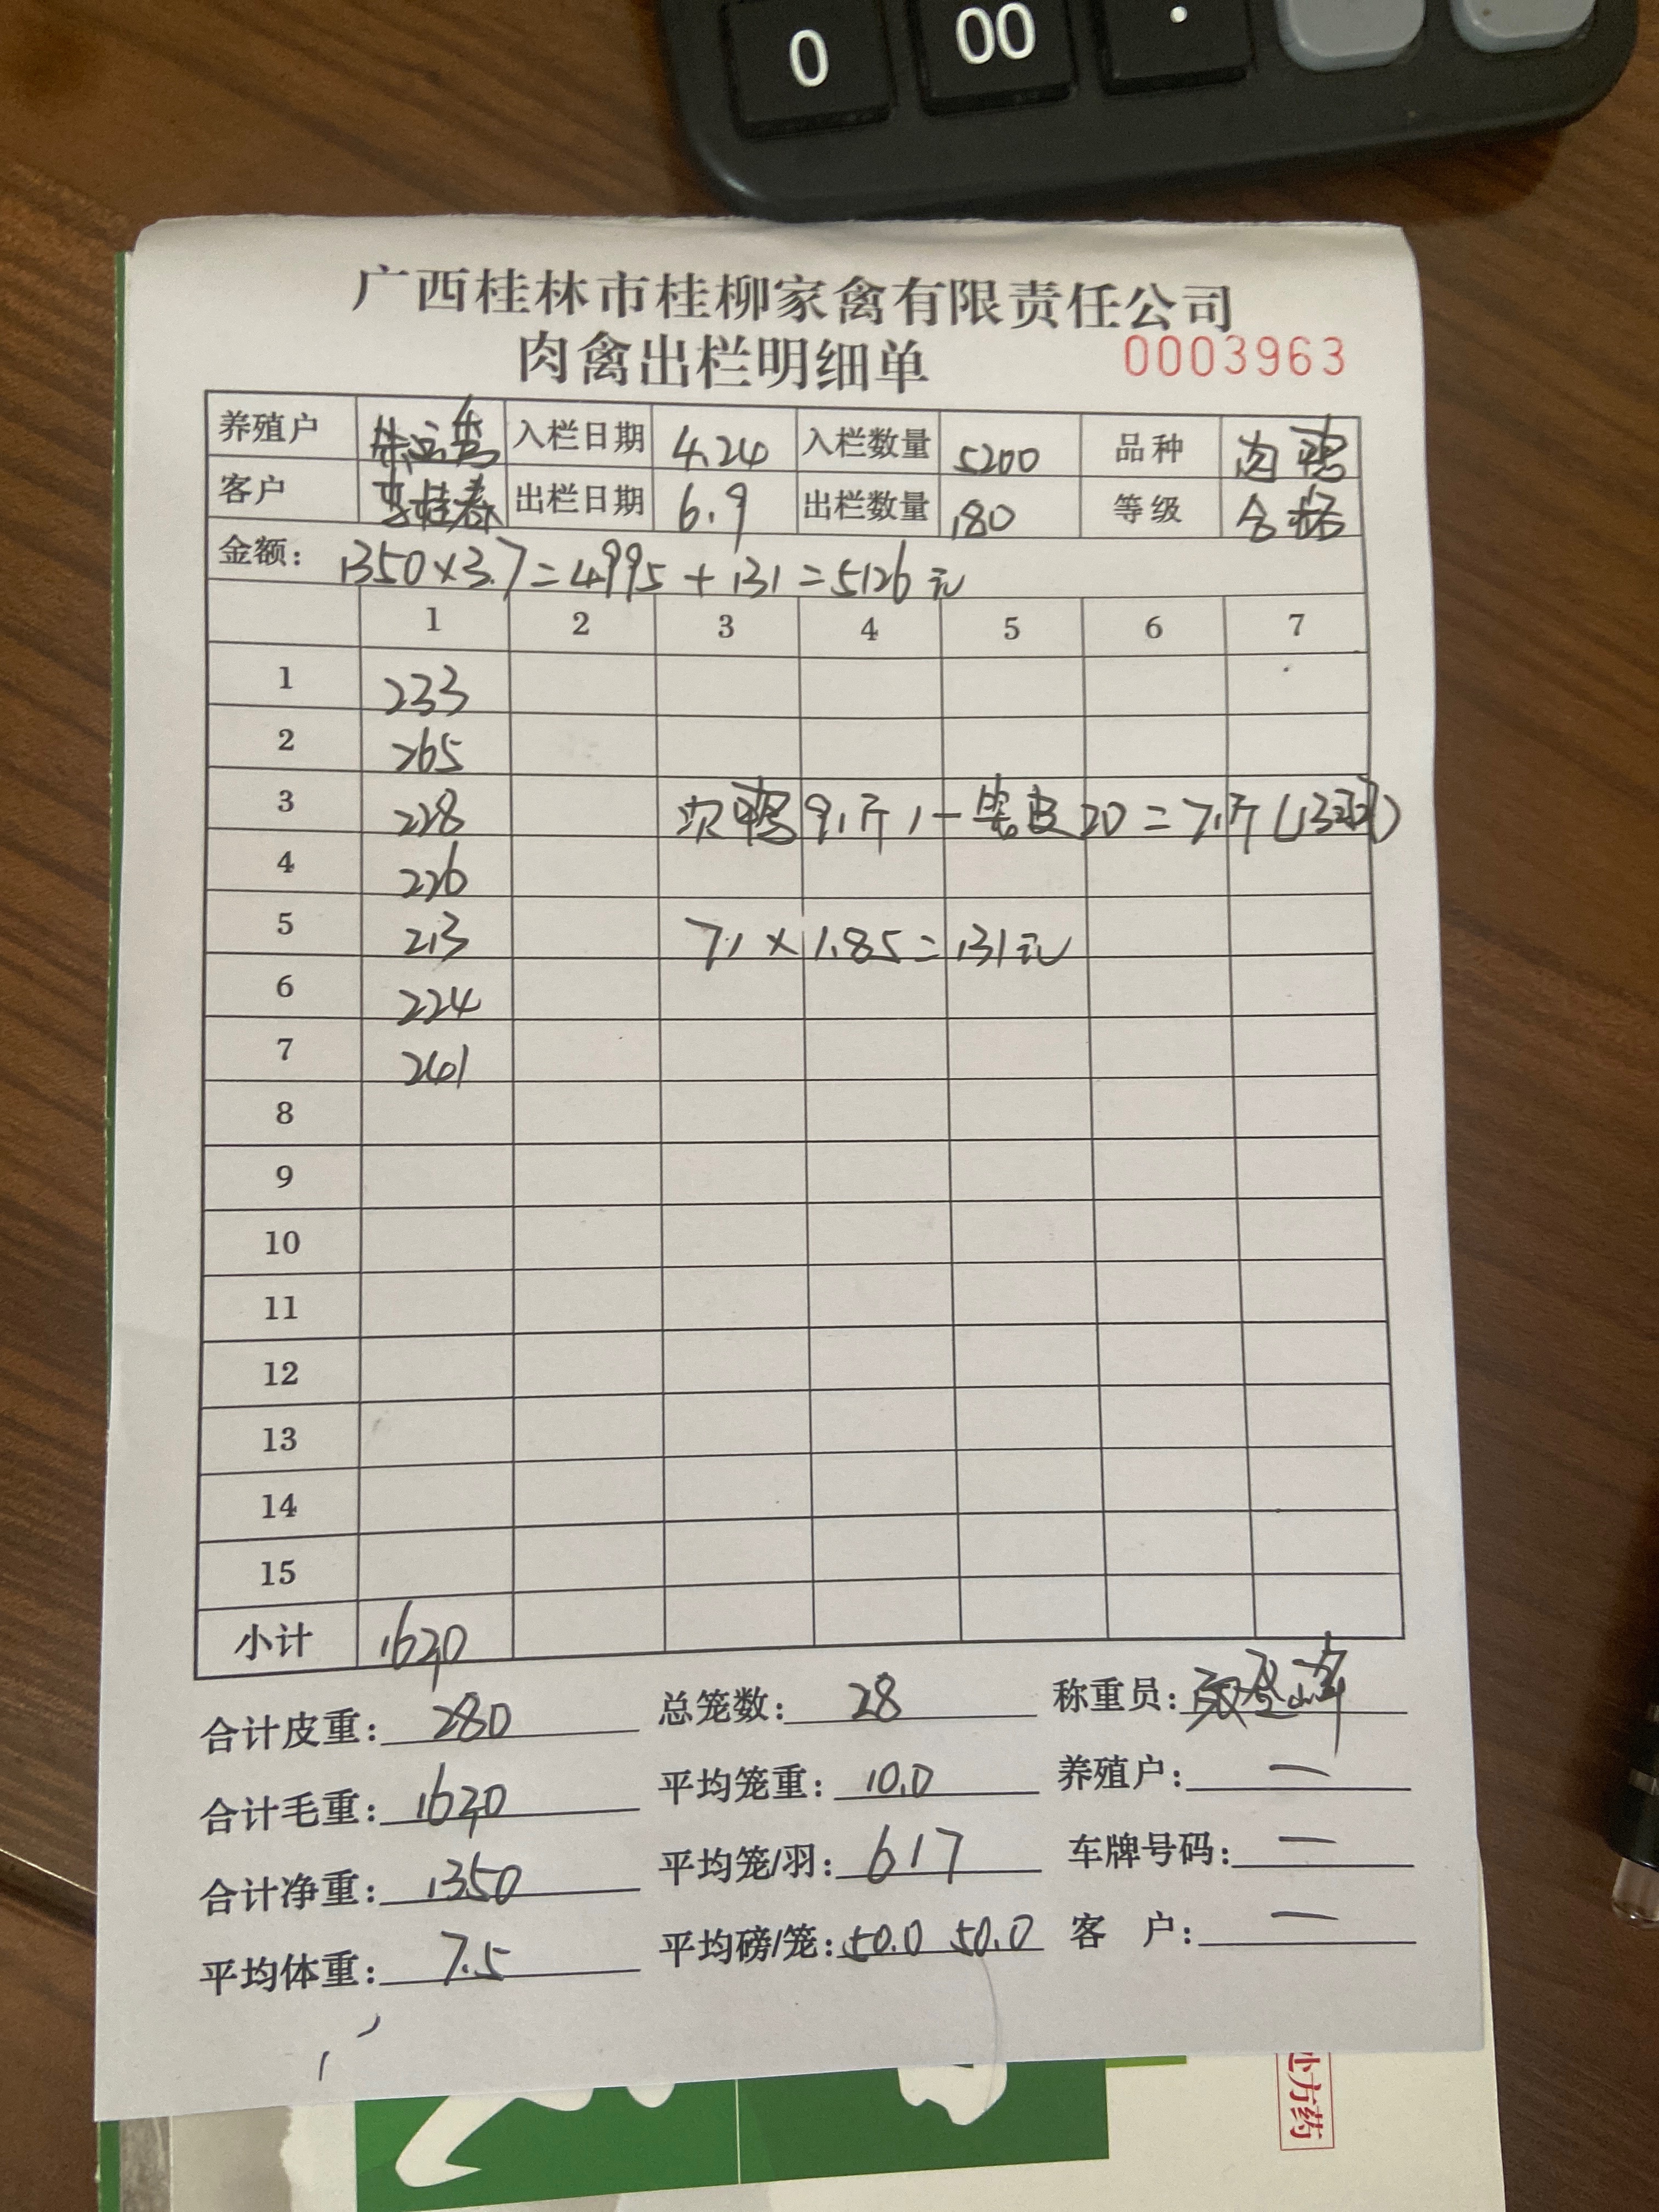 0 00 .
广西桂林市桂柳家禽有限责任公司
肉禽出栏明细单 0003963
养殖户 入栏日期 4.24 入栏数量 5200 品种 肉鸭
客户 李桂春 出栏日期 6.9 出栏数量 180 等级 合格
金额: 1350×3.7=4995+131=5126元
1 2 3 4 5 6 7
1 233
2 265
3 228 次鸭91斤-笼皮20=71斤(13羽)
4 226
5 213 71×1.85=131元
6 224
7 241
8
9
10
11
12
13
14
15
小计 1630
合计皮重: 280 总笼数: 28 称重员:
合计毛重: 1630 平均笼重: 10.0 养殖户: 一
合计净重: 1350 平均笼/羽: 6 17 车牌号码: 一
平均体重: 7.5 平均磅/笼: 50.0 50.0 客 户: 一
处方药